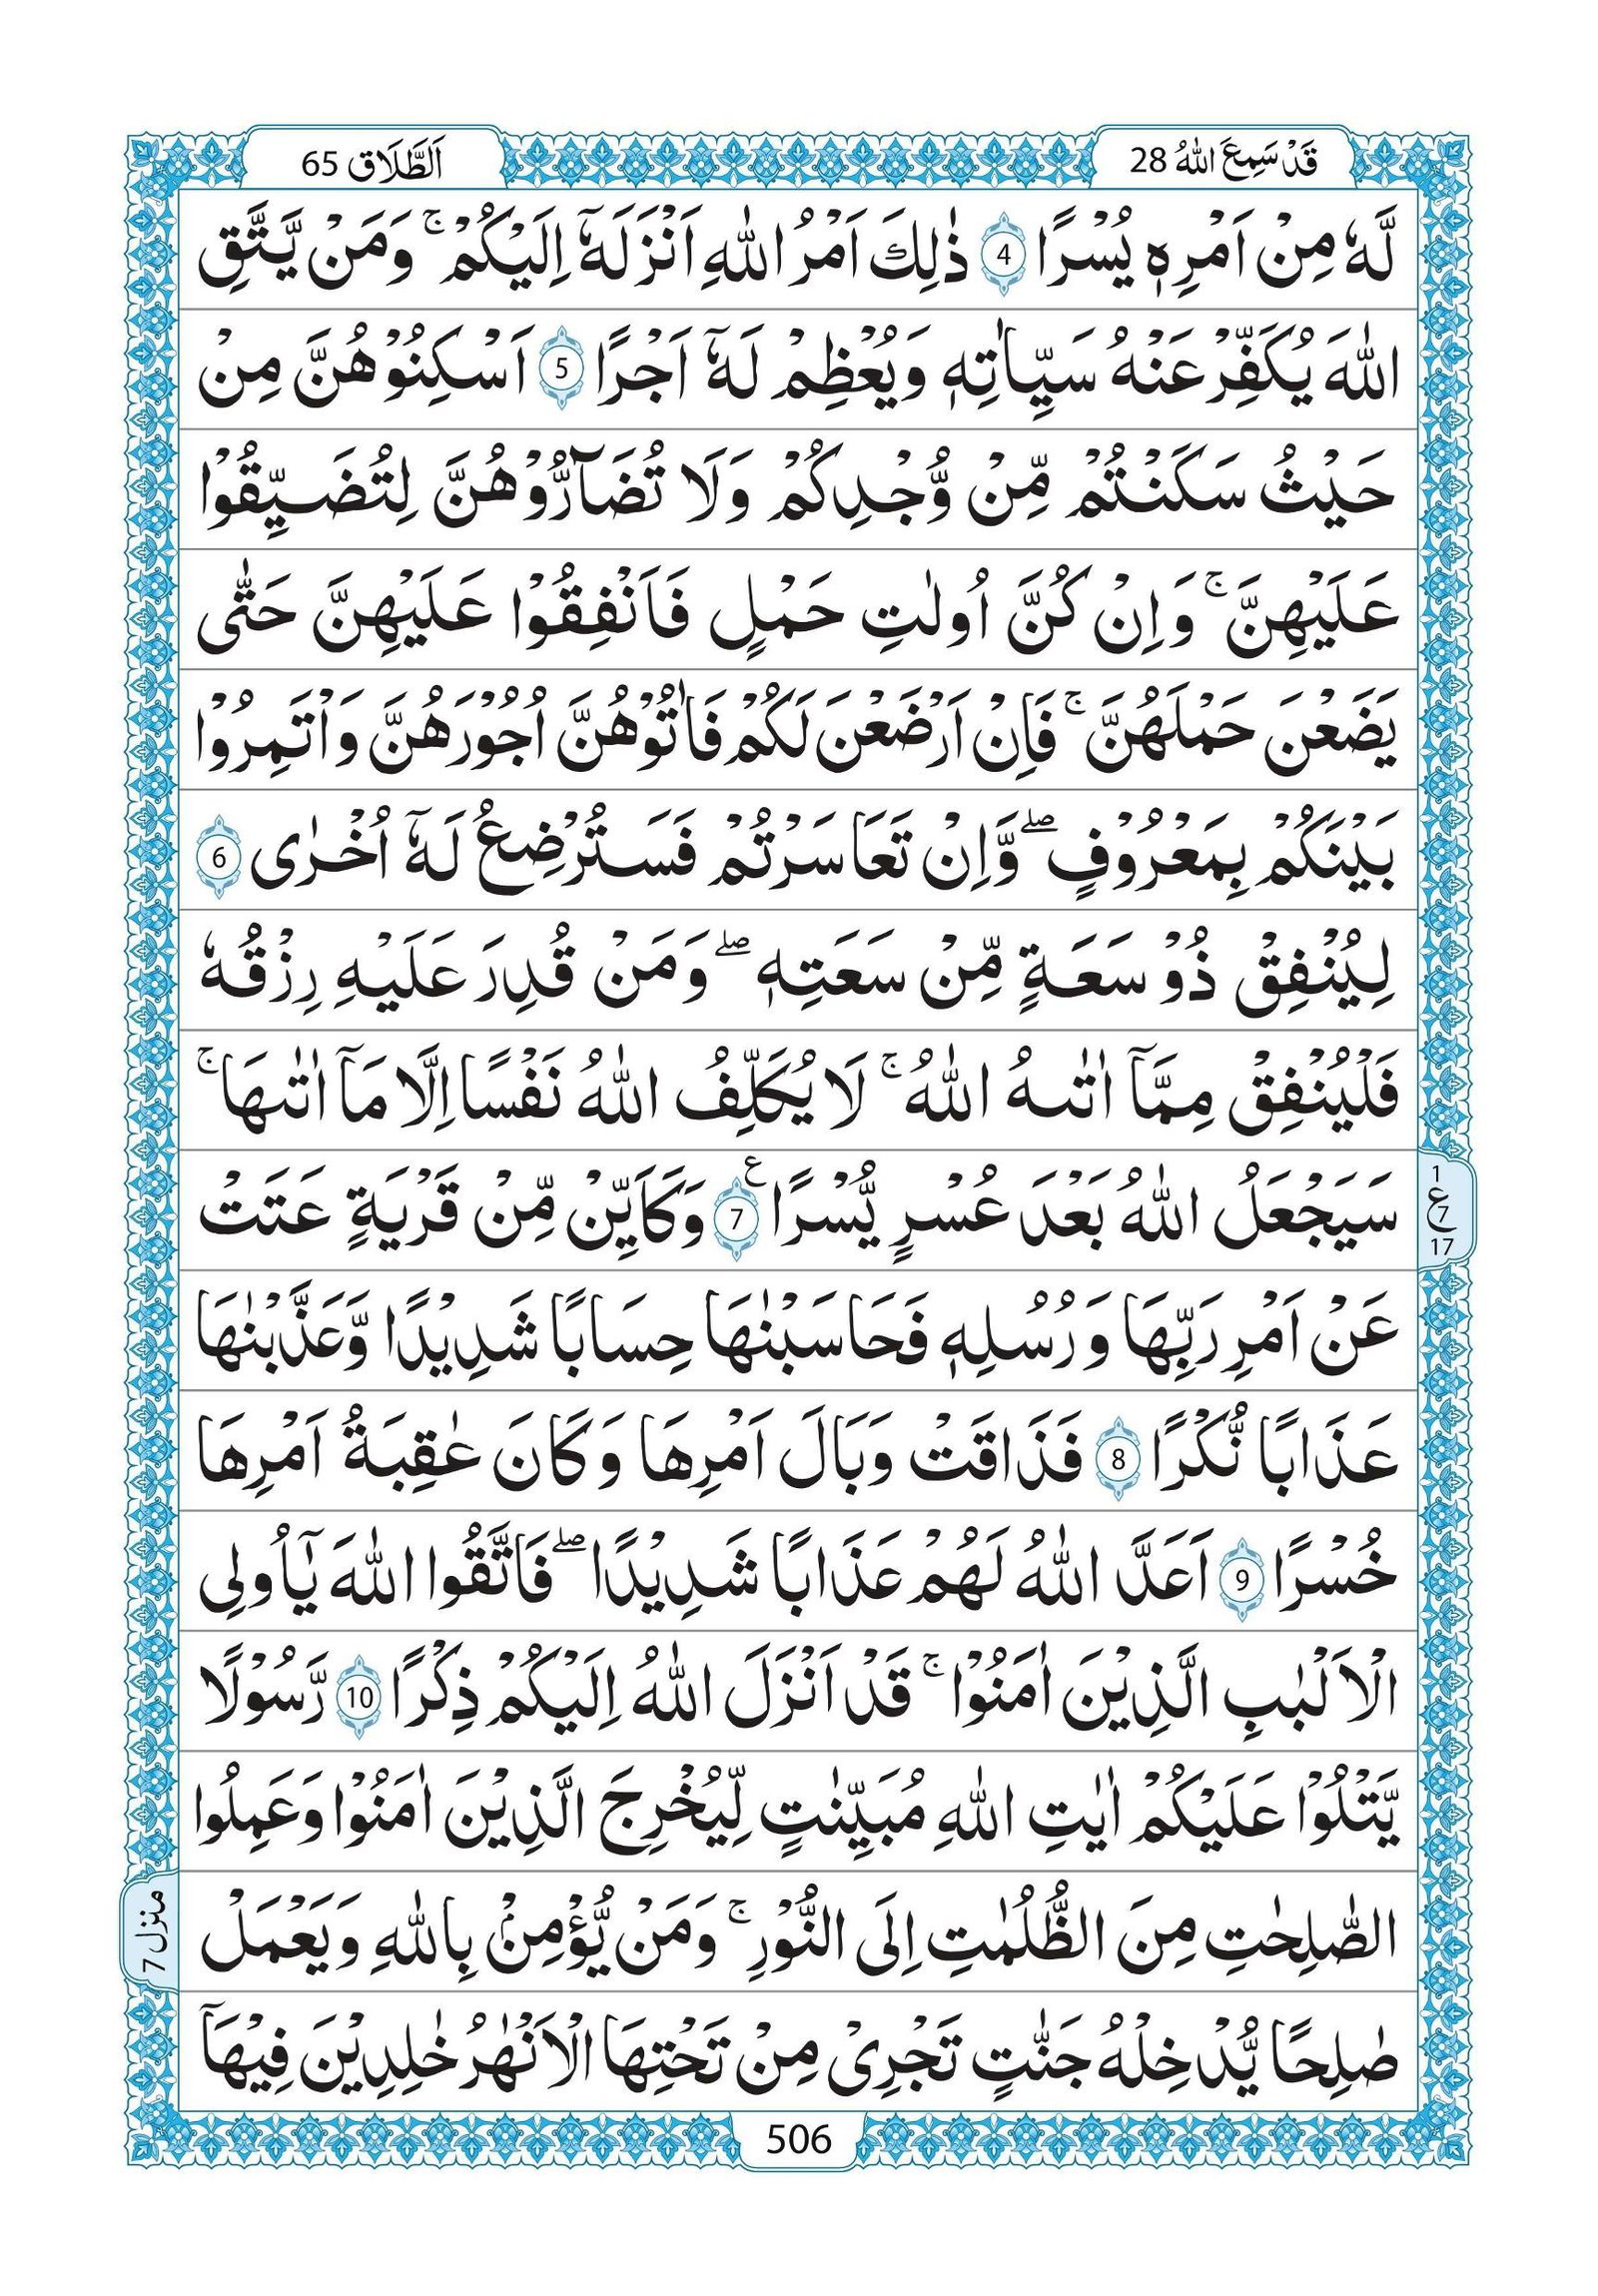 قَدْ سَمِعَ اللّٰهُ 28
اَلطَّلَاق 65
لَّهٗ مِنْ اَمْرِهٖ يُسْرًا 4 ذٰلِكَ اَمْرُ اللّٰهِ اَنْزَلَهٗۤ اِلَيْكُمْ ۚ وَمَنْ يَّتَّقِ
اللّٰهَ يُكَفِّرْ عَنْهُ سَيِّاٰتِهٖ وَيُعْظِمْ لَهٗۤ اَجْرًا 5 اَسْكِنُوْهُنَّ مِنْ
حَيْثُ سَكَنْتُمْ مِّنْ وُّجْدِكُمْ وَلَا تُضَآرُّوْهُنَّ لِتُضَيِّقُوْا
عَلَيْهِنَّ ۚ وَاِنْ كُنَّ اُولٰتِ حَمْلٍ فَاَنْفِقُوْا عَلَيْهِنَّ حَتّٰى
يَضَعْنَ حَمْلَهُنَّ ۚ فَاِنْ اَرْضَعْنَ لَكُمْ فَاٰتُوْهُنَّ اُجُوْرَهُنَّ وَاْتَمِرُوْا
بَيْنَكُمْ بِمَعْرُوْفٍ ۖ وَّاِنْ تَعَاسَرْتُمْ فَسَتُرْضِعُ لَهٗۤ اُخْرٰى 6
لِيُنْفِقْ ذُوْ سَعَةٍ مِّنْ سَعَتِهٖ ۖ وَمَنْ قُدِرَ عَلَيْهِ رِزْقُهٗ
فَلْيُنْفِقْ مِمَّاۤ اٰتٰىهُ اللّٰهُ ۚ لَا يُكَلِّفُ اللّٰهُ نَفْسًا اِلَّا مَاۤ اٰتٰىهَا ۚ
سَيَجْعَلُ اللّٰهُ بَعْدَ عُسْرٍ يُّسْرًا 7 ع وَكَاَيِّنْ مِّنْ قَرْيَةٍ عَتَتْ
1
ع 7
17
عَنْ اَمْرِ رَبِّهَا وَرُسُلِهٖ فَحَاسَبْنٰهَا حِسَابًا شَدِيْدًا وَّعَذَّبْنٰهَا
عَذَابًا نُّكْرًا 8 فَذَاقَتْ وَبَالَ اَمْرِهَا وَكَانَ عٰقِبَةُ اَمْرِهَا
خُسْرًا 9 اَعَدَّ اللّٰهُ لَهُمْ عَذَابًا شَدِيْدًا ۖ فَاتَّقُوا اللّٰهَ يٰۤاُولِى
الْاَلْبٰبِ الَّذِيْنَ اٰمَنُوْا ۚ قَدْ اَنْزَلَ اللّٰهُ اِلَيْكُمْ ذِكْرًا 10 رَّسُوْلًا
يَّتْلُوْا عَلَيْكُمْ اٰيٰتِ اللّٰهِ مُبَيِّنٰتٍ لِّيُخْرِجَ الَّذِيْنَ اٰمَنُوْا وَعَمِلُوا
الصّٰلِحٰتِ مِنَ الظُّلُمٰتِ اِلَى النُّوْرِ ۚ وَمَنْ يُّؤْمِنْۢ بِاللّٰهِ وَيَعْمَلْ
منزل 7
صَالِحًا يُّدْخِلْهُ جَنّٰتٍ تَجْرِىْ مِنْ تَحْتِهَا الْاَنْهٰرُ خٰلِدِيْنَ فِيْهَاۤ
506